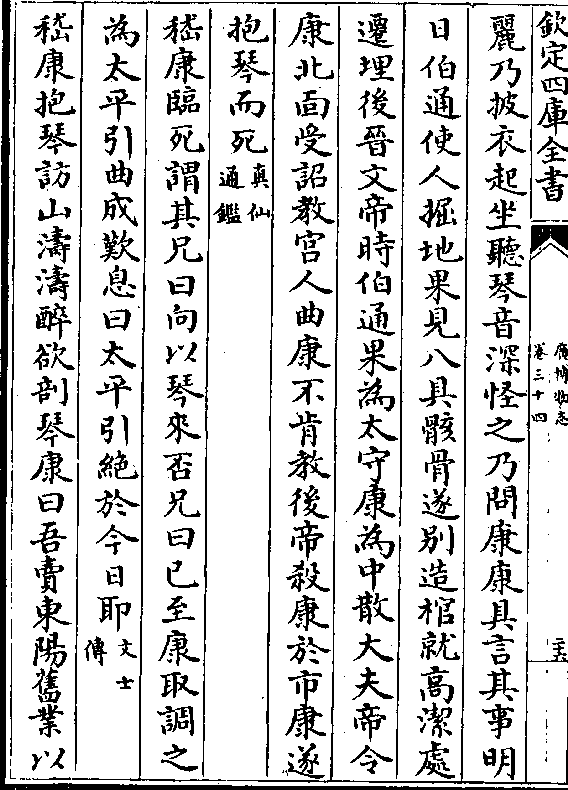 欽定四庫全書
廣博物志
卷三十四
麗乃披衣起坐聽琴音深怪之乃問康康具言其事明
日伯通使人掘地果見八具骸骨遂别造棺就高潔處
遷埋後晉文帝時伯通果為太守康為中散大夫帝令
康北面受詔教宫人曲康不肯教後帝殺康於市康遂
抱琴而死真仙通鑑
嵇康臨死謂其兄曰向以琴來否兄曰已至康取調之
為太平引曲成歎息曰太平引絶於今日耶文士傳
嵇康抱琴訪山濤濤醉欲剖琴康曰吾賣東陽舊業以